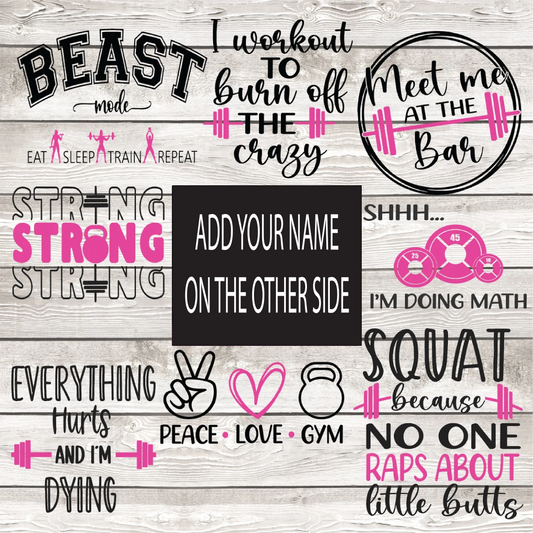 BEAST
mode
EAT SLEEP TRAIN REPEAT
I workout
TO
burn off
THE
crazy
Meet me
AT THE
Bar
STRONG
STRONG
STRONG
ADD YOUR NAME
ON THE OTHER SIDE
SHHH...
45
25
10
I'M DOING MATH
EVERYTHING
Hurts
AND I'M
DYING
PEACE • LOVE • GYM
SQUAT
because
NO ONE
RAPS ABOUT
little butts